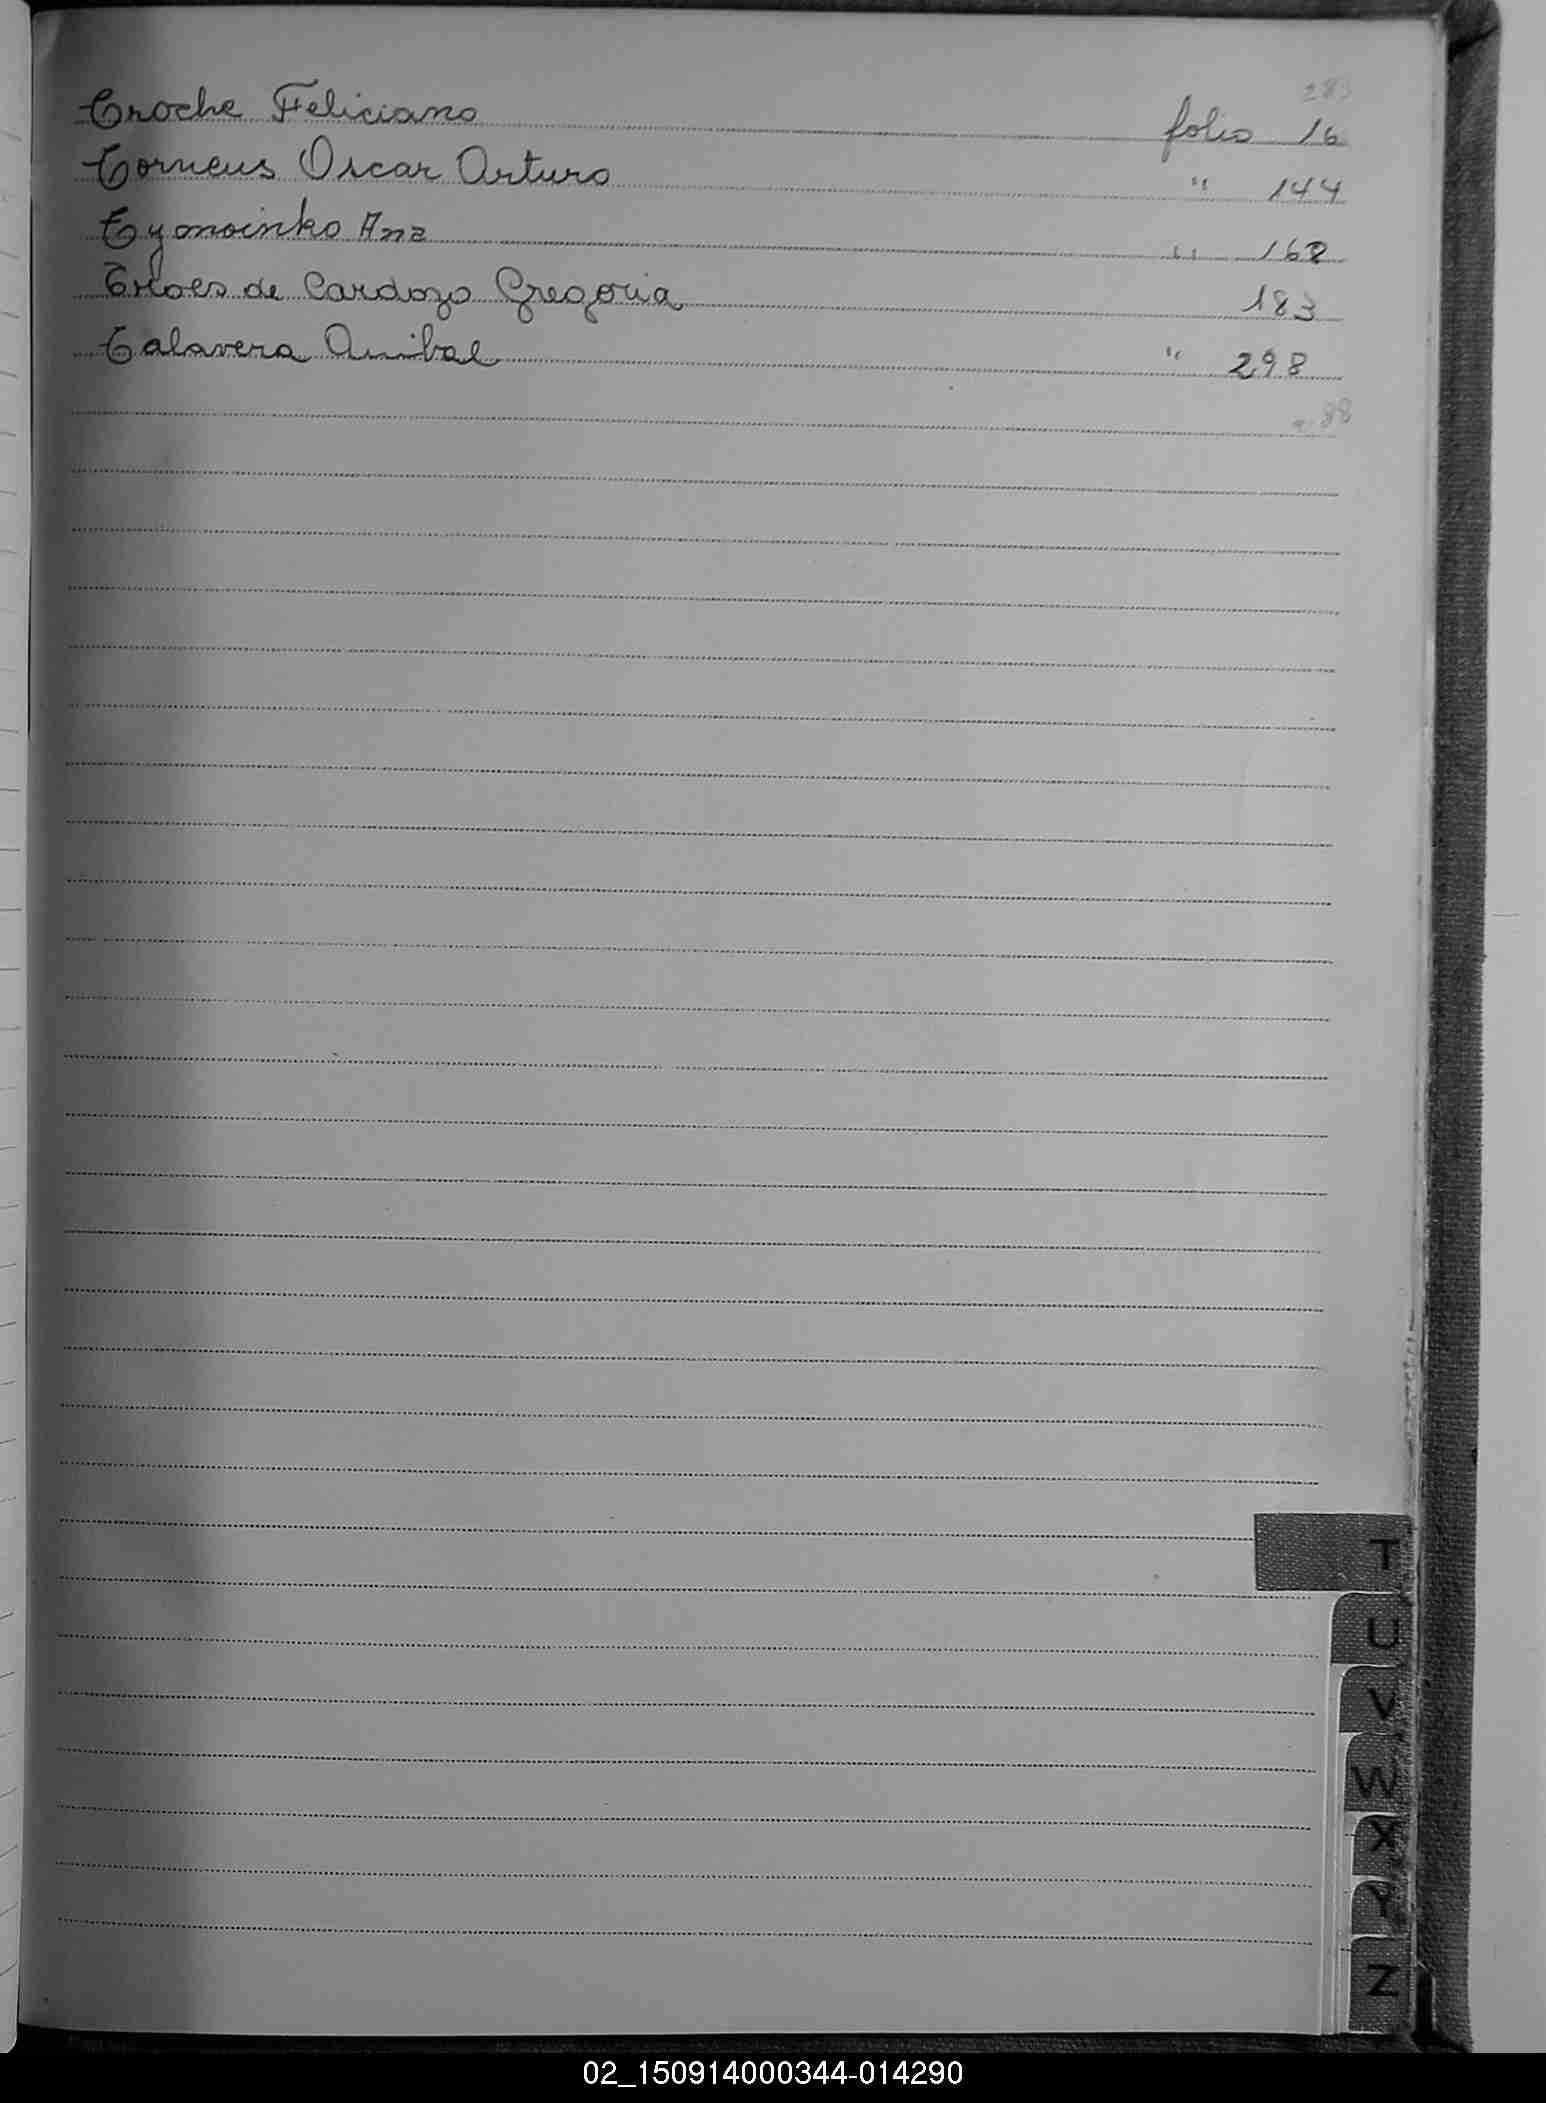 Troche Feliciano folio 16
Torneus Oscar Arturo " 144
Tymoinko Ana " 168
de Cardozo Gregoria 183
Talavera Anibal " 298
T
U
V
W
X
Y
Z
02_150914000344-014290